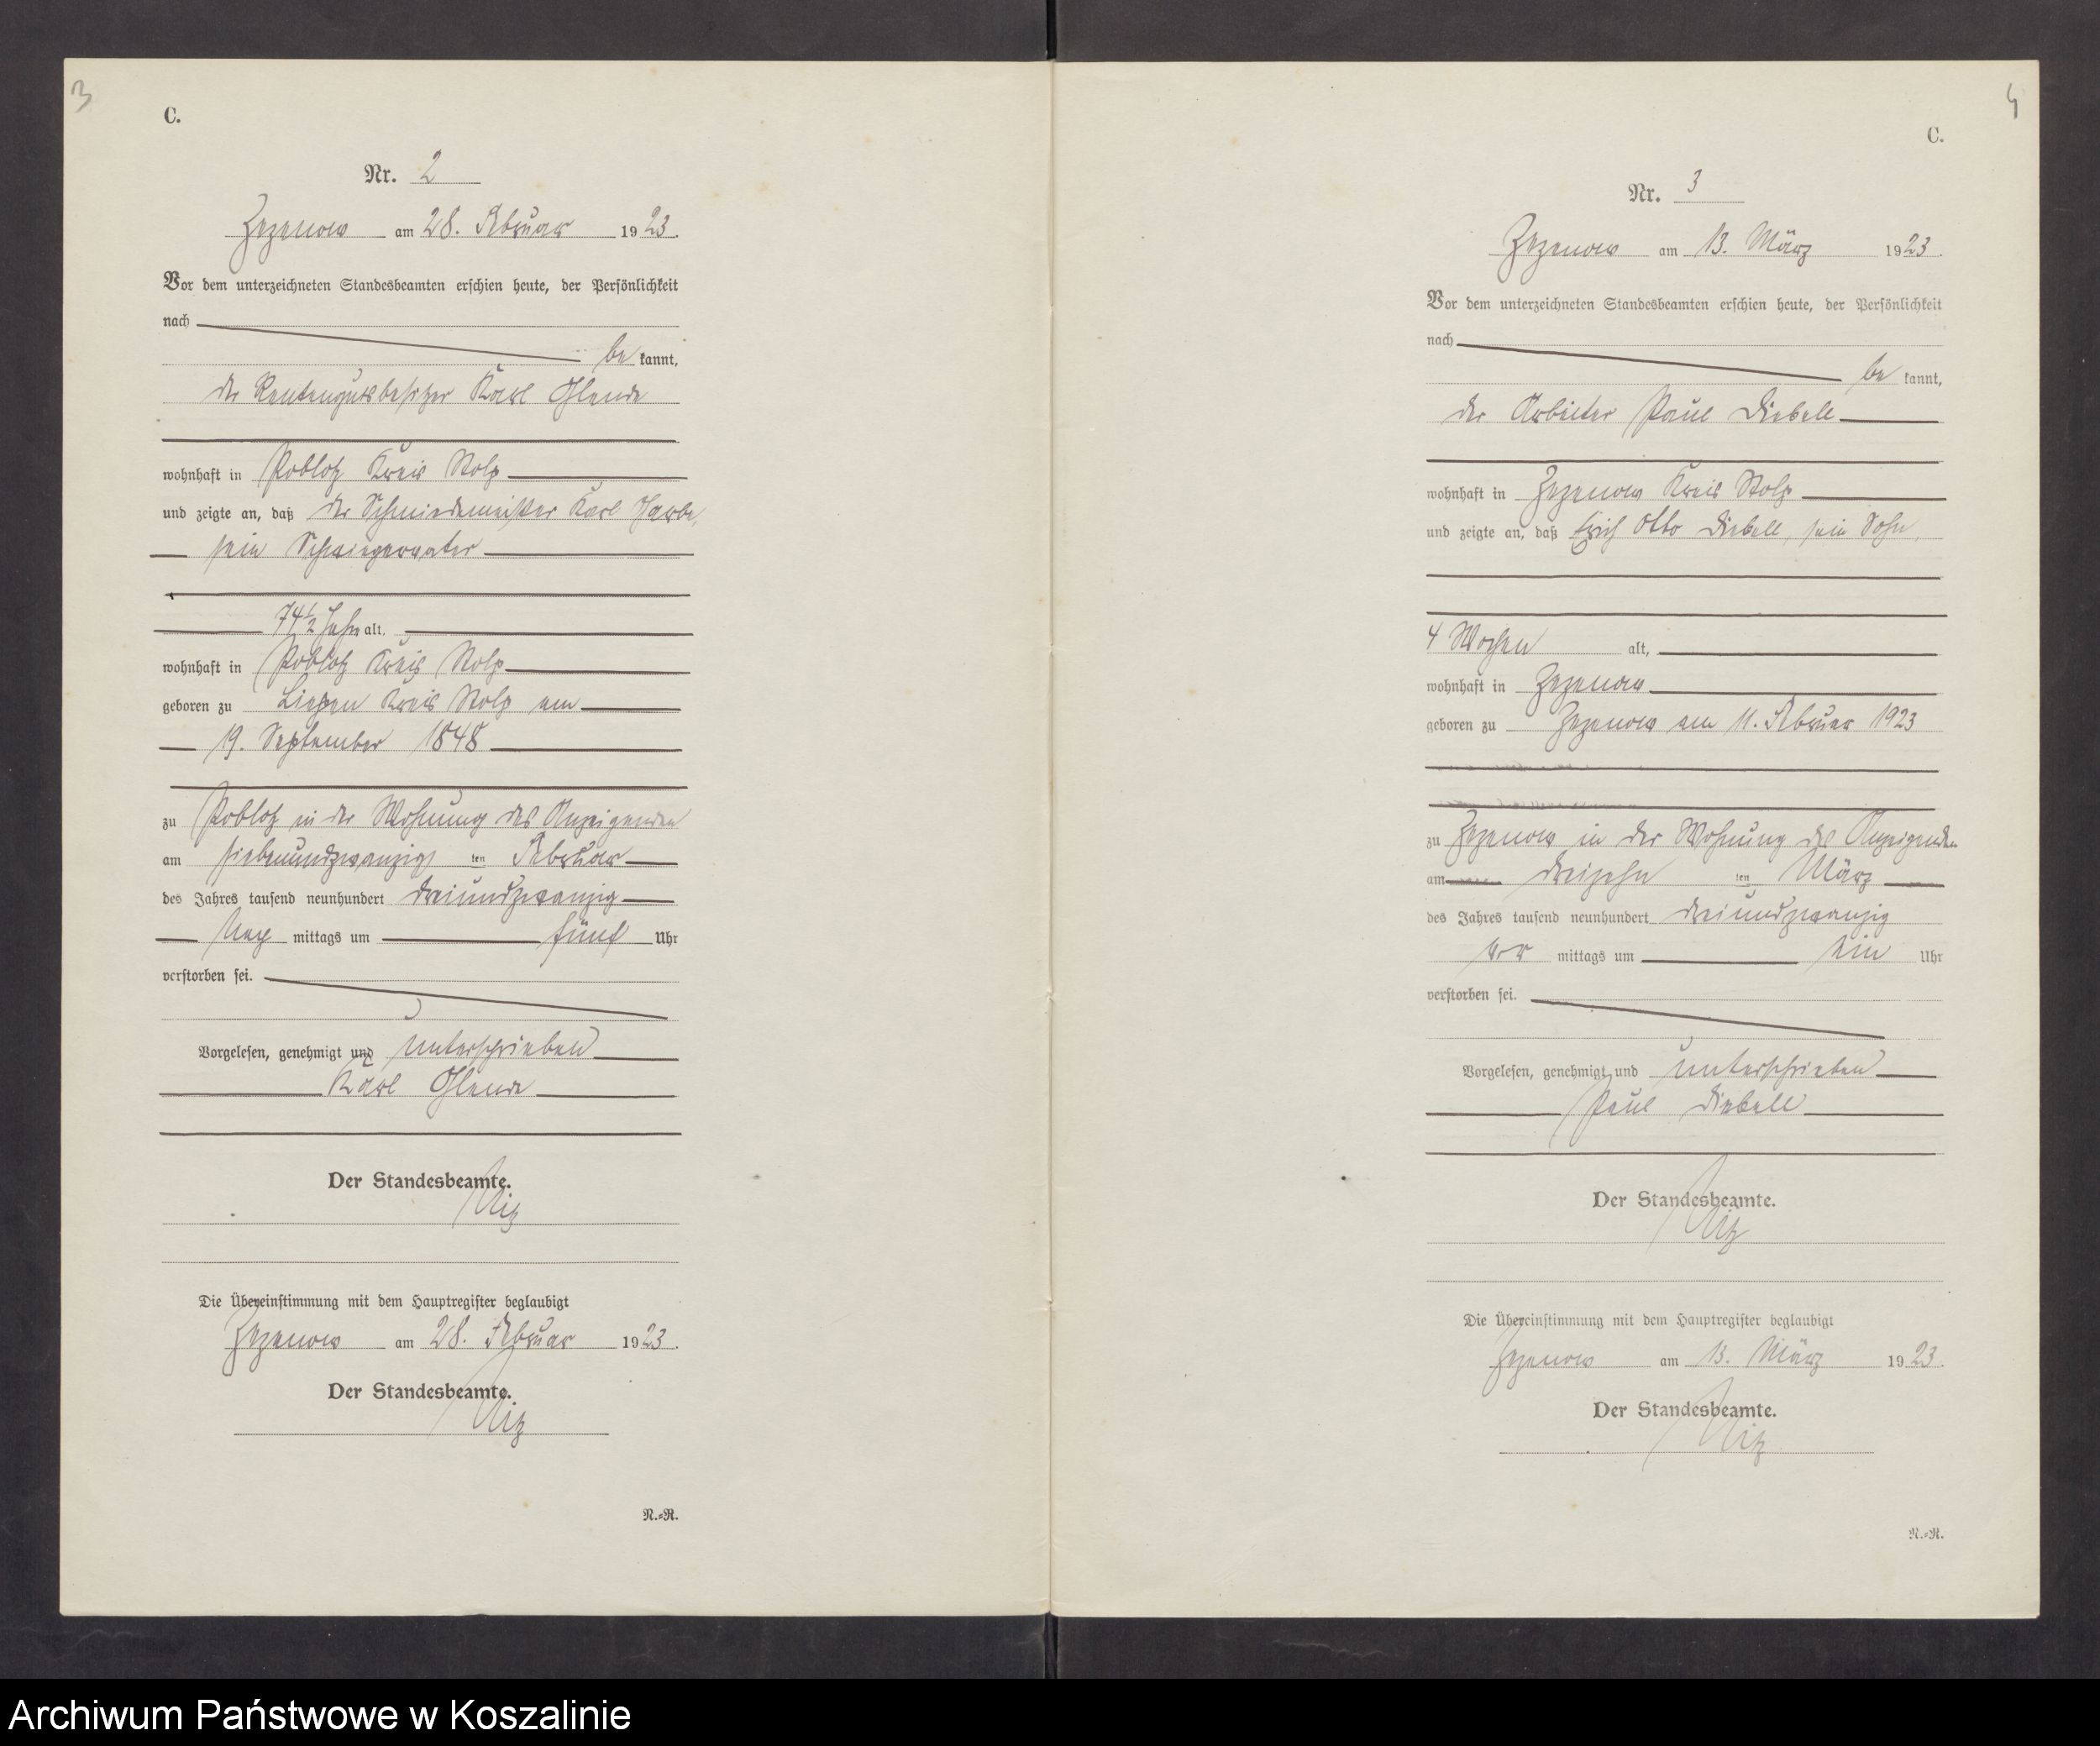 3
C.
Nr. 2
Zezenow am 28. Februar 1923.
Vor dem unterzeichneten Standesbeamten erschien heute, der Persönlichkeit
nach
be kannt,
der Rentengutsbesitzer Karl Ohlende
wohnhaft in Poblotz Kreis Stolp
und zeigte an, daß der Schmiedemeister Karl Harbe,
sein Schwiegervater
74 1/2 Jahre alt,
wohnhaft in Poblotz Kreis Stolp
geboren zu Liepen Kreis Stolp am
19. September 1848
zu Poblotz in der Wohnung des Anzeigenden
am siebenundzwanzig ten Februar
des Jahres tausend neunhundert dreiundzwanzig
Nach mittags um fünf Uhr
verstorben sei.
Vorgelesen, genehmigt und unterschrieben
Karl Ohlende
Der Standesbeamte.
Die Übereinstimmung mit dem Hauptregister beglaubigt
Zezenow am 28. Februar 1923.
Der Standesbeamte.
N.=R.
4
C.
Nr. 3
Zezenow am 13. März 1923.
Vor dem unterzeichneten Standesbeamten erschien heute, der Persönlichkeit
nach
be kannt,
der Arbeiter Paul Diebell
wohnhaft in Zezenow Kreis Stolp
und zeigte an, daß Erich Otto Diebell, sein Sohn,
4 Wochen alt,
wohnhaft in Zezenow
geboren zu Zezenow am 11. Februar 1923
zu Zezenow in der Wohnung des Anzeigenden
am dreizehn ten März
des Jahres tausend neunhundert dreiundzwanzig
vor mittags um ein Uhr
verstorben sei.
Vorgelesen, genehmigt und unterschrieben
Paul Diebell
Der Standesbeamte.
Die Übereinstimmung mit dem Hauptregister beglaubigt
Zezenow am 13. März 1923.
Der Standesbeamte.
N.=R.
Archiwum Państwowe w Koszalinie